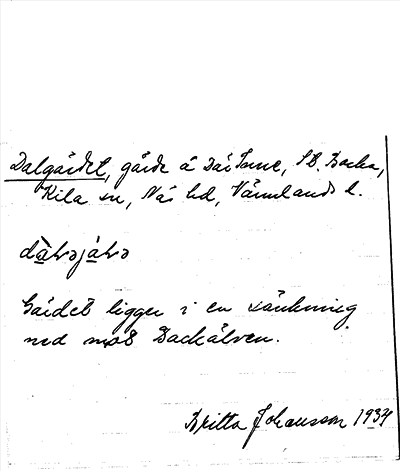 Dalgärdet, gärde å Därtmne, St. Backa,
Kila sn, Näs hd, Värmlands l.
dàləjálə
Gärdet ligger i en sänkning
ned mot Backälven.
Britta Johansson 1934